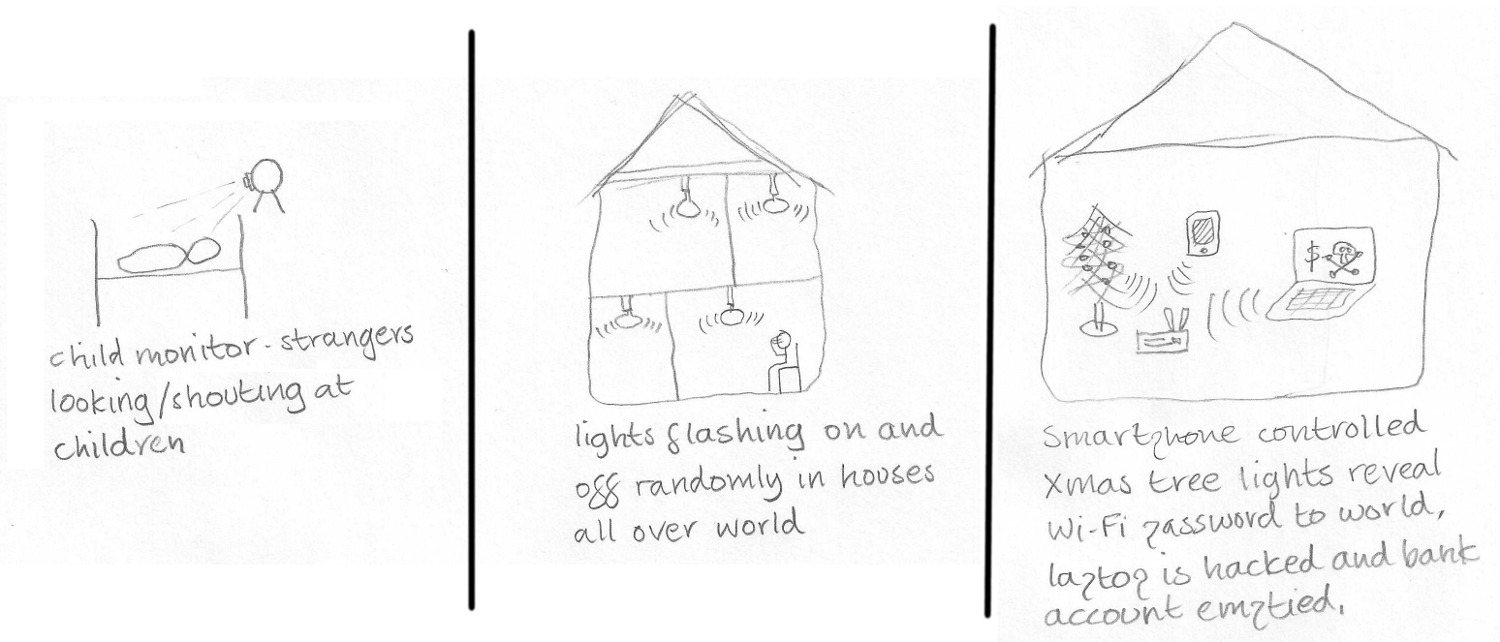 child monitor - strangers
looking/shouting at
children
lights flashing on and
off randomly in houses
all over world
$
Smartphone controlled
Xmas tree lights reveal
Wi-Fi password to world,
laptop is hacked and bank
account emptied.